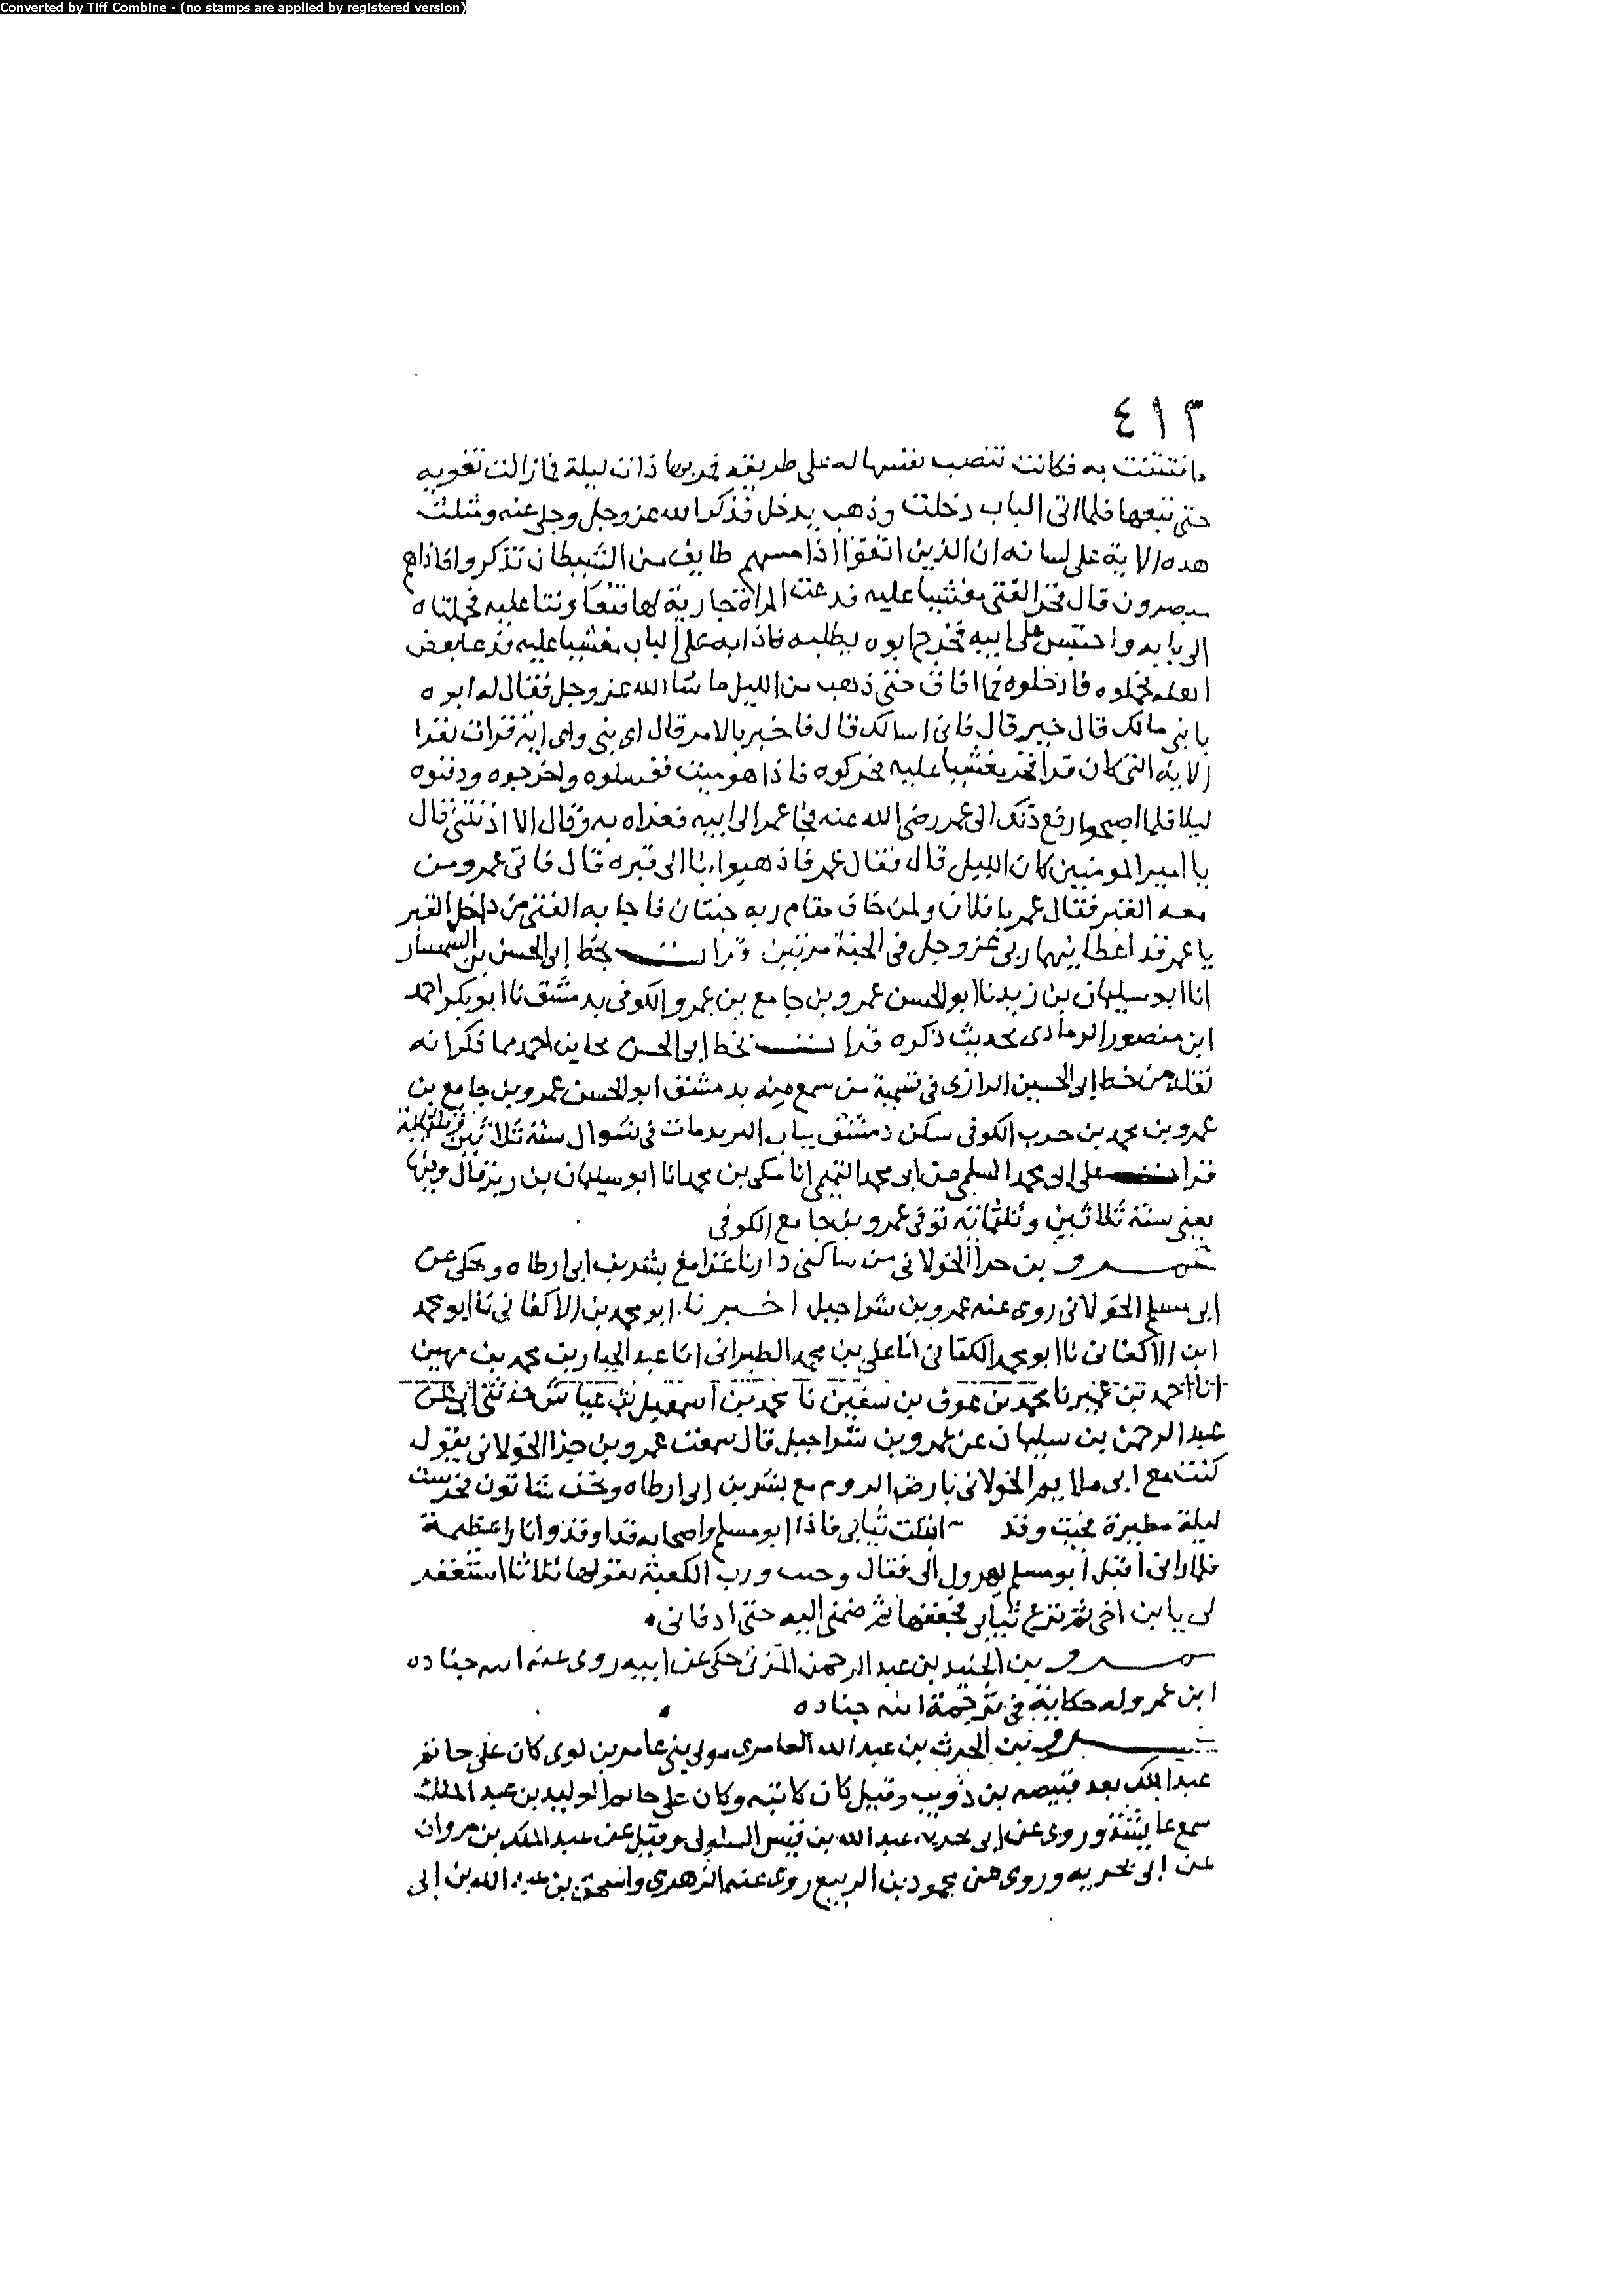 Converted by Tiff Combine - (no stamps are applied by registered version)
٤١٣
فافتتنت به فكانت تنصب نفسها له على طريقه فمر بها ذات ليلة فما زالت تغويه
حتى تبعها فلما اتى الباب دخلت وذهب يدخل فذكر الله عز وجل وجلى عنه ومثلت
هذه الاية على لسانه ان الذين اتقوا اذا مسهم طايف من الشيطان تذكروا فاذا هم
مبصرون قال فخر الفتى مغشيا عليه فدعت المراة جارية لها فتعاونتا عليه فحملتاه
الى بابه واحتبس على ابيه فخرج ابوه يطلبه فاذا به على الباب مغشيا عليه فدعا بعض
اهله فحملوه فادخلوه فما افاق حتى ذهب من الليل ما شا الله عز وجل فقال له ابوه
يا بني مالك قال خير قال فاني اسالك قال فاخبر بالامر قال اي بني واي اية قرات فقرا
الاية التي كان قرا فخر مغشيا عليه فحركوه فاذا هو ميت فغسلوه واخرجوه ودفنوه
ليلا فلما اصبحوا رفع ذلك الى عمر رضي الله عنه فجا عمر الى ابيه فعزاه به وقال الا اذنتني قال
يا امير المومنين كان الليل قال فقال عمر فاذهبوا بنا الى قبره قال فاتى عمر ومن
معه القبر فقال عمر يا فلان ولمن خاف مقام ربه جنتان فاجابه الفتى من داخل القبر
يا عمر قد اعطانيهما ربي عز وجل في الجنة مرتين قرات بخط ابي الحسن بن السمسار
انا ابو سليمان بن زبر نا ابو الحسن عمرو بن جامع بن عمرو الكوفي بدمشق نا ابو بكر احمد
ابن منصور الرمادي بحديث ذكره قرات بخط ابي الحسن نجا بن احمد مما ذكر انه
نقله من خط ابي الحسين الرازي في تسمية من سمع منه بدمشق ابو الحسن عمرو بن جامع بن
عمرو بن محمد بن حرب الكوفي سكن دمشق بباب البريد مات في شوال سنة ثلاثين وثلثماية
قرات على ابي محمد السلمي عن ابي محمد التميمي انا مكي بن محمد انا ابو سليمان بن زبر قال وفيها
يعني سنة ثلاثين وثلثمائة توفي عمرو بن جامع الكوفي
عمرو بن جزا الخولاني من ساكني داريا غزا مع بشر بن ابي ارطاه وحكى عن
ابي مسلم الخولاني روى عنه عمرو بن شراحيل اخبرنا ابو محمد بن الاكفاني نا ابو محمد
ابن الاكفاني نا ابو محمد الكتاني انا علي بن محمد الطبراني انا عبد الجبار بن محمد بن مهين
انا احمد بن عمير نا محمد بن عوف بن سفين نا محمد بن اسمعيل بن عياش حدثني ابي عن
عبد الرحمن بن سليمان عن عمرو بن شراحيل قال سمعت عمرو بن جزا الخولاني يقول
كنت مع ابي مسلم الخولاني بارض الروم مع بشر بن ابي ارطاه ونحن شاتون فحرست
ليلة مطيرة فجيت وقد ابتلت ثيابي فاذا ابو مسلم واصحابه قد اوقدوا نارا عظيمة
فلما راني اقبل ابو مسلم يهرول الى فقال وجبت ورب الكعبة يقولها ثلاثا استغفر
لي يا بن اخي ثم نزع ثيابي فجففها ثم ضمني اليه حتى ادفاني
عمرو بن الجنيد بن عبد الرحمن المزني حكى عن ابيه روى عنه ابنه جناده
ابن عمرو له حكاية في ترجمة ابنه جناده
عمرو بن الحرث بن عبد الله العامري مولى بني عامر بن لوي كان على خاتم
عبد الملك بعد قبيصه بن ذويب وقيل كان كاتبه وكان على خاتم الوليد بن عبد الملك
سمع عايشة وروى عن ابي بحريه عبد الله بن قيس السلولي وقيل عن عبد الملك بن مروان
عن ابي بحريه وروى عن محمود بن الربيع روى عنه الزهري واسحق بن عبد الله بن ابي